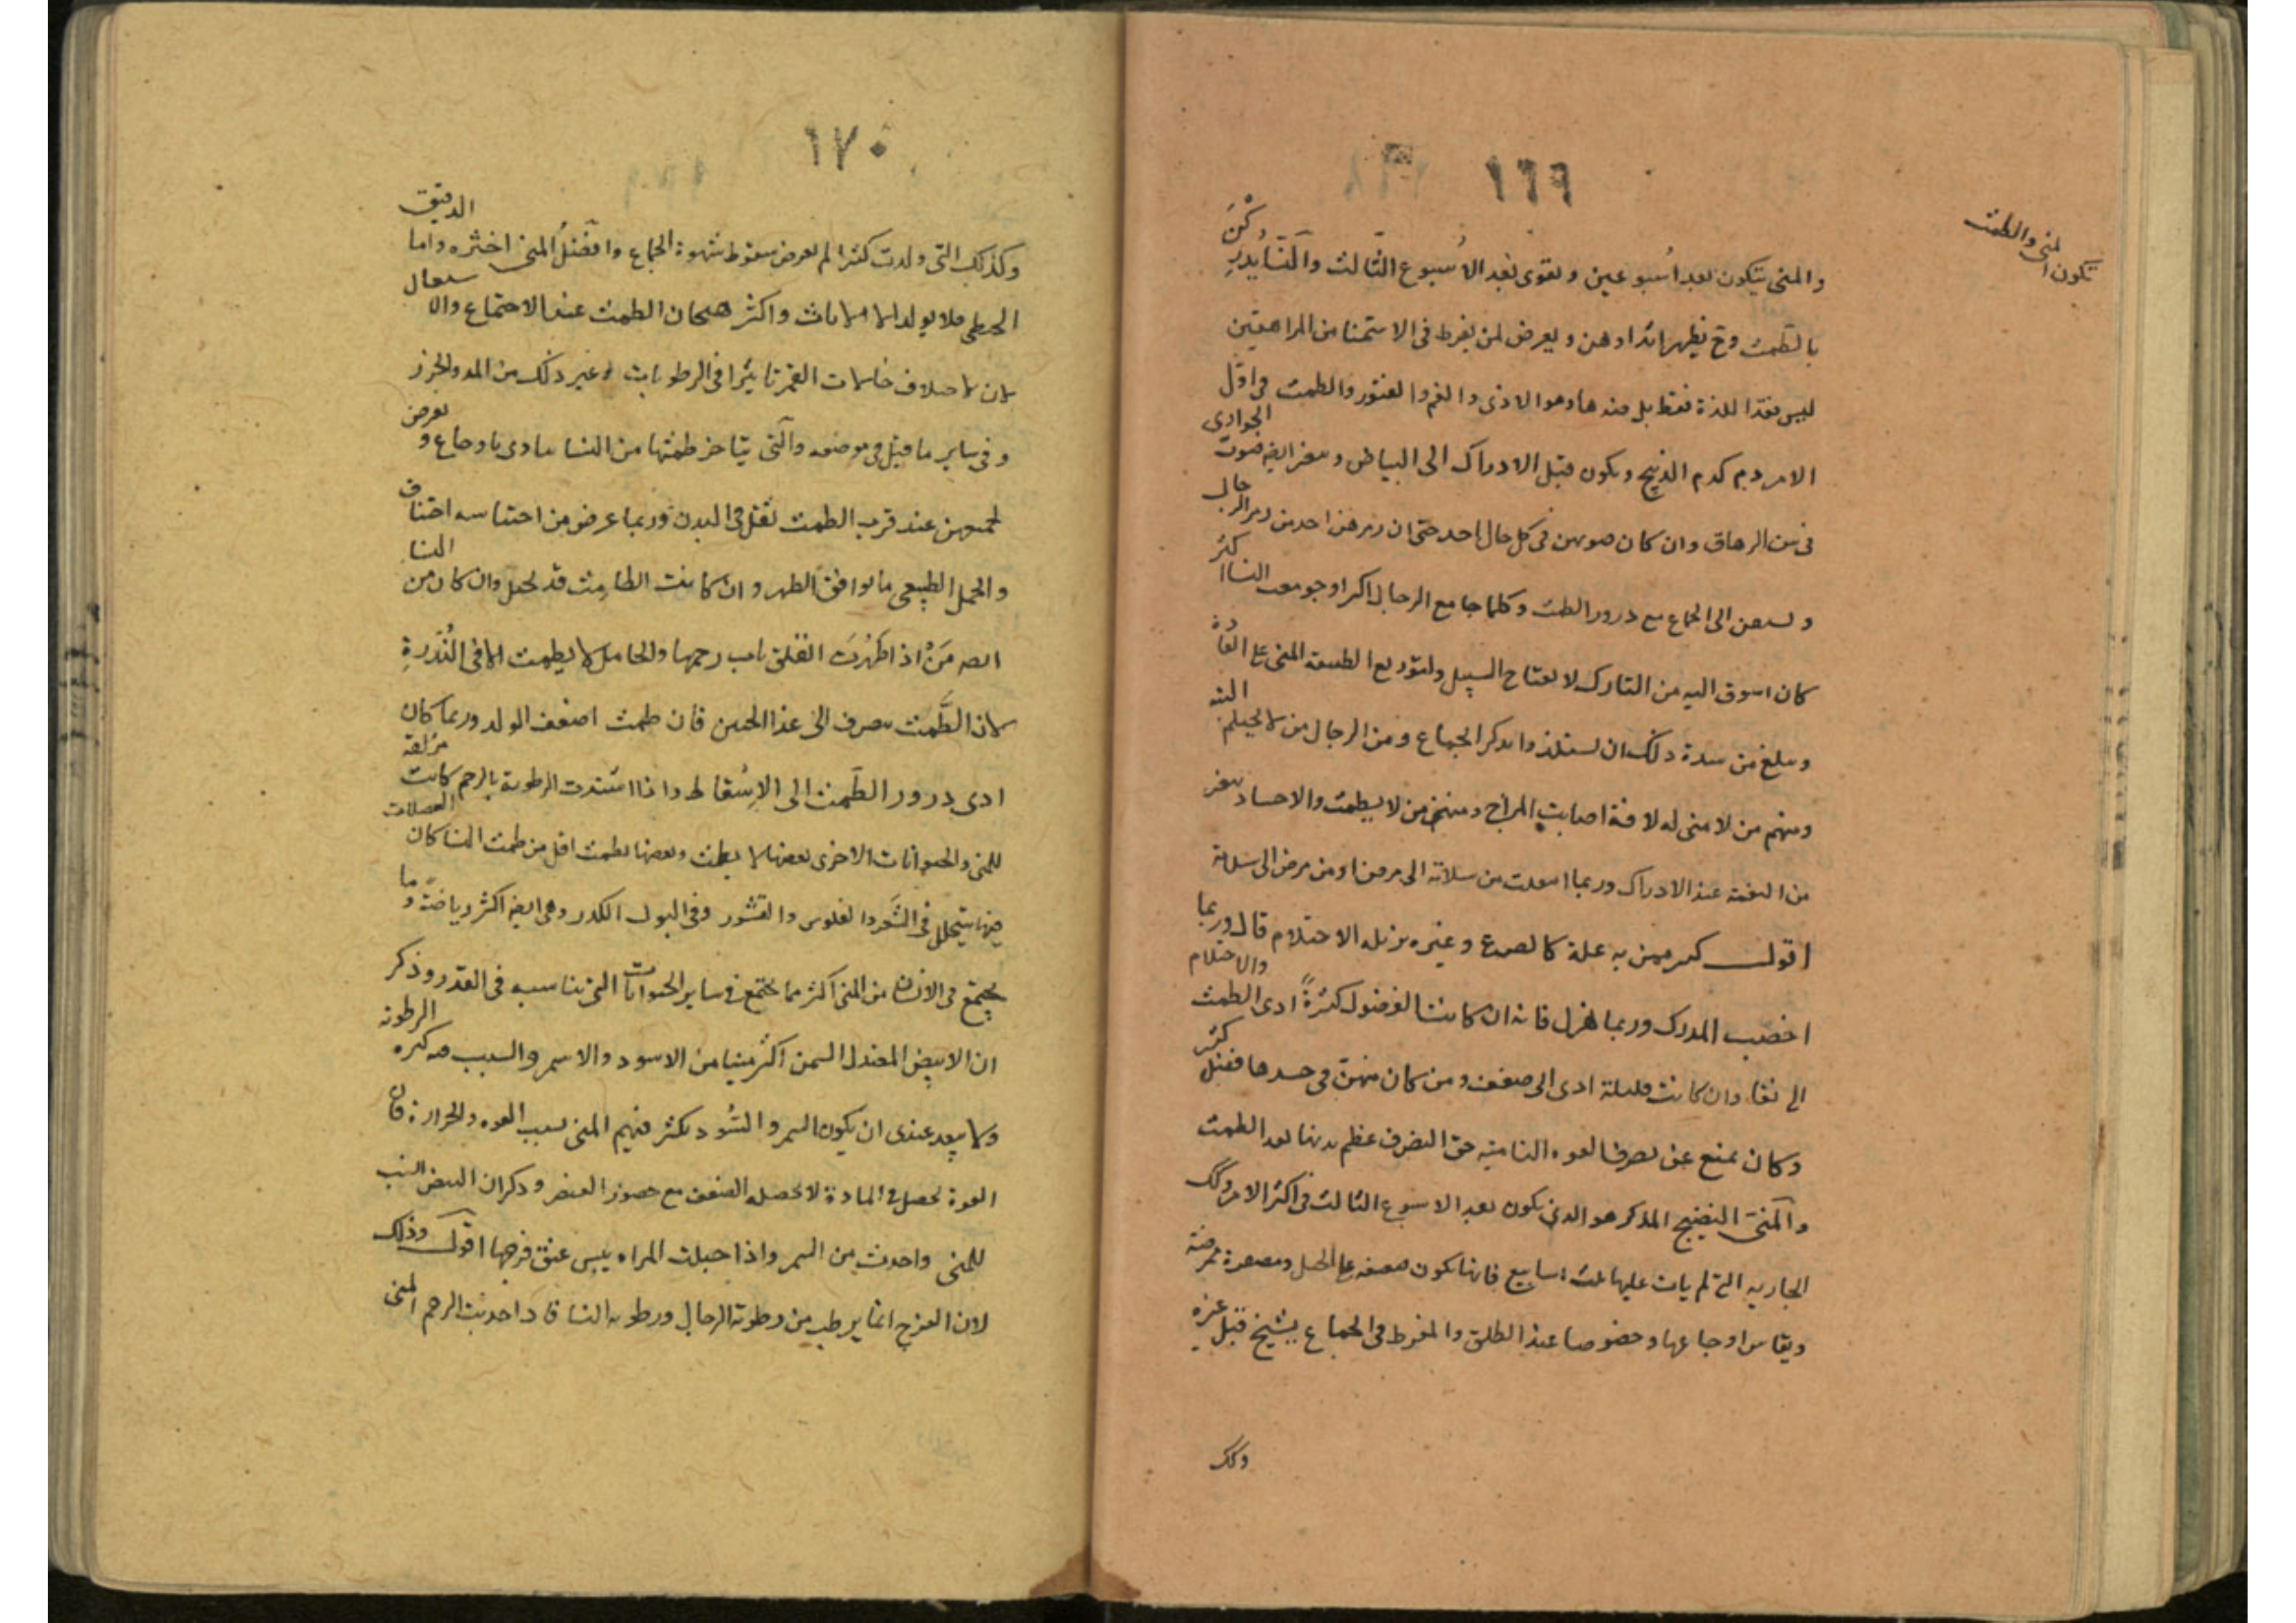 ١٦٩
تكون المني والطمث
والمنى يتكون بعد اسبوعين ويقوى بعد الأسبوع الثالث والنسا يدركن
بالطمث وح يظهر اثداوهن ويعرض لمن يفرط فى الاستمنا من المراهقين
ليس فقد اللذة فقط بل منه ها وهو الاذى والغم والفتور والطمث فى اول
الامر دم كدم الذبيح ويكون قبل الادراك الى البياض وصوت الجوارى
فى سن الرهاق وان كان صوتهن فى كل حال احد حتى ان زمرهن احد من زمر الرجال
الى الجماع مع درور الطمث وكلما جامع الرجال اكثر او جومعت النسا اكثر
كان اسوق اليه من التارك لانفتاح السبيل ولتوزيع الطبيعة المنى على العادة
ويبلغ من شدة ذلك ان يستلذوا بذكر الجماع ومن الرجال من لا يحتلم البتة
ومنهم من لا منى له لافة اصابت المزاج ومنهن من لا يطمث والاجساد
عند الادراك وربما انتقلت من سلامة الى مرض او من مرض الى سلامة
اقول كثير ممن به علة كالصرع وغيره يزيله الاحتلام قال وربما
اخصب المدرك وربما هزل فانه ان كانت الفضول كثيرةً ادى الطمث والاحتلام
الى نقا وان كانت قليلة ادى الى ضعف ومن كان منهن فى جسدها فضل كثير
وكان يمنع عن تصرف القوه الناميه حق التصرف عظم بدنها بعد الطمث
والمنى النضيج المذكر هو الذى يكون بعد الاسبوع الثالث فى اكثر الامر وكك
الجاريه التى لم يات عليها ثلث اسابيع فانها تكون ممرضة
ويقاس اوجاعها وخصوصا عند الطلق والمفرط فى الجماع يشيخ قبل غيره
وكك
١٧٠
وكذلك التى ولدت كثيرا لم يعرض سقوط شهوة الجماع وافضل المنى اخثره واما الدقيق
الخيطى فلا يولد الا الاناث واكثر هيجان الطمث عند الاجتماع
لان لاختلاف حالات القمر تاثيرا فى الرطوبات وغير ذلك من المد والجزر
وفى ساير ما قيل فى موضعه والتى يتاخر طمثها من النسا تتادى باوجاع ويعرض
لجميعهن عند قرب الطمث ثقل فى البدن وربما عرض من احتباسه اختناق
والحمل الطبيعى ما يوافق الطهر وان كانت الطامث قد تحبل وان كان من النسا
مَنْ اذا طهُرت انغلق باب رحمها والحامل لا يطمث الا فى النُدرةِ
لان الطَّمث يصرف الى غذا الجنين فان طمثت اضعف الولد وربما كان
ادى درور الطَّمث الى الاِسقاط واذا اشتدت الرطوبة بالرحم كانت مزلقة
للمنى والحيوانات الاخرى بعضها لا يطمث وبعضها يطمث اقل من طمث النسا كان الفضلات
فيها يتحلل فى الشَّعر والفلوس والقشور وفى البول الكدر وهى ايضا اكثر رياضةً وما
يجتمع فى الانسان من المنى اكثر مما يجتمع فى ساير الحيوانات التى تناسبه فى القدر وذكر
ان الابيض المعتدل السمن اكثر منيا من الاسود والاسمر والسبب فيه كثره الرطوبه
ولا يبعد عندى ان يكون السمر والسُّود يكثر فيهم المنى بسبب القوه والحرارة فان
القوة تحصل فى المادة لا تحصله الضعف مع حضور العنصر وذكر ان البيض انسب
للمنى واحدث من السمر واذا حبلت المراه يبس عنق فرجها اقول وذلك
لان الفرج انما يرطب من رطوبة الرجال ورطوبه النسا فاذا جذبت الرحم المنى